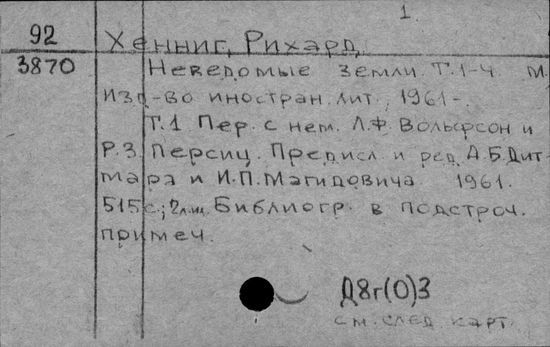 1.
92 Хенниг, Рихард.
3870 Неведомые земли. Т.1-4. М.
Изд-во иностран. лит., 1961-.
Т.1. Пер. с нем. Л.Ф. Вольфсон и
Р.З. Персиц. Предисл. и ред. А.Б. Дит-
мара и И.П. Магидовича. 1961.
515с.; 2л.ил. Библиогр. в подстроч.
примеч.
Д8г(0)3
см. след. карт.